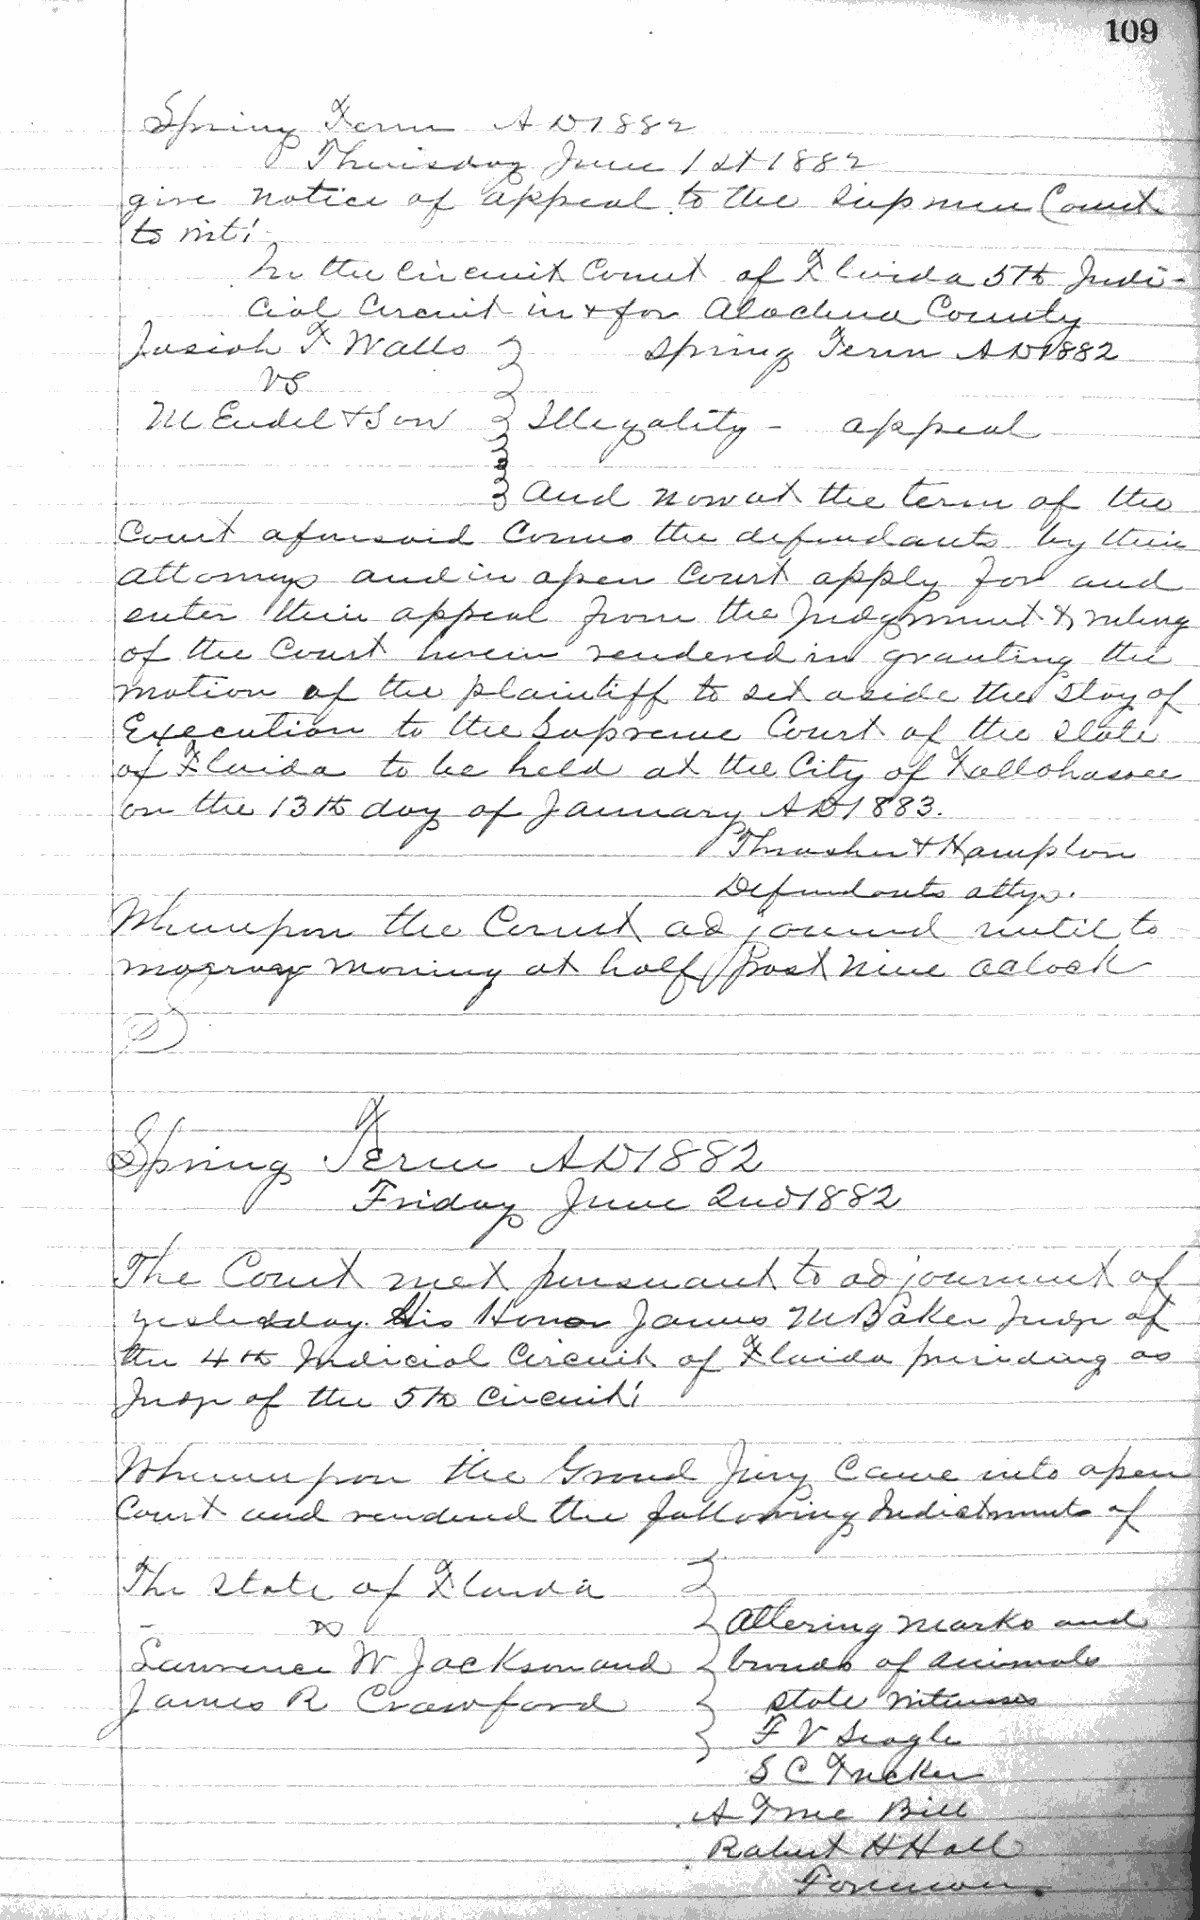 109
Spring Term AD 1882
Thursday June 1st 1882
give notice of appeal to the Supreme Court
to wit:
In the Circuit Court of Florida 5th Judi-
cial Circuit in & for Alachua County
Josiah T Walls Spring Term AD 1882
vs
M Endel & Son Illegality - appeal
And now at the term of the
Court aforesaid Comes the defendants by their
attorneys and in open Court apply for and
enter their appeal from the Judgment & ruling
of the Court herein rendered in granting the
motion of the plaintiff to set aside the Stay of
Execution to the Supreme Court of the State
of Florida to be held at the City of Tallahassee
on the 13th day of January AD 1883.
Thrasher & Hampton
Defendants attys.
Whereupon the Court adjourned until to
morrow morning at half past nine oclock
Spring Term AD 1882
Friday June 2nd 1882
The Court met pursuant to adjournment of
yesterday. His Honor James M Baker Judge of
the 4th Judicial Circuit of Florida presiding as
Judge of the 5th Circuit:
Whereupon the Grand Jury Came into open
Court and rendered the following Indictments of
The State of Florida
vs Altering marks and
Lawrence W Jackson and brands of animals
James R Crawford State witnesses
F V Seagle
S C Tucker
A True Bill
Robert H Hall
Foreman.